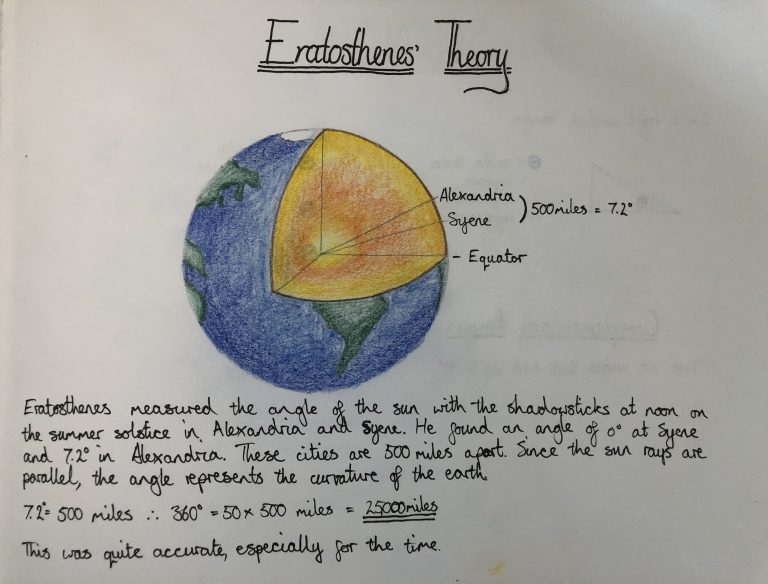 Eratosthenes' Theory
Alexandria
Syene
) 500 miles = 7.2°
- Equator
Eratosthenes measured the angle of the sun with the shadowsticks at noon on
the summer solstice in Alexandria and Syene. He found an angle of 0° at Syene
and 7.2° in Alexandria. These cities are 500 miles apart. Since the sun rays are
parallel, the angle represents the curvature of the earth.
7.2°= 500 miles ∴ 360° = 50 x 500 miles = 25000miles
This was quite accurate, especially for the time.